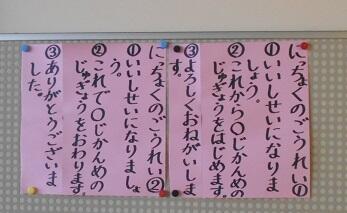 にっちょくのごうれい①
①いいしせいになりま
しょう。
②これから〇じかんめの
じゅぎょうをはじめます。
③よろしくおねがいしま
す。
にっちょくのごうれい②
①いいしせいになりましょ
う。
②これで〇じかんめの
じゅぎょうをおわります。
③ありがとうございま
した。